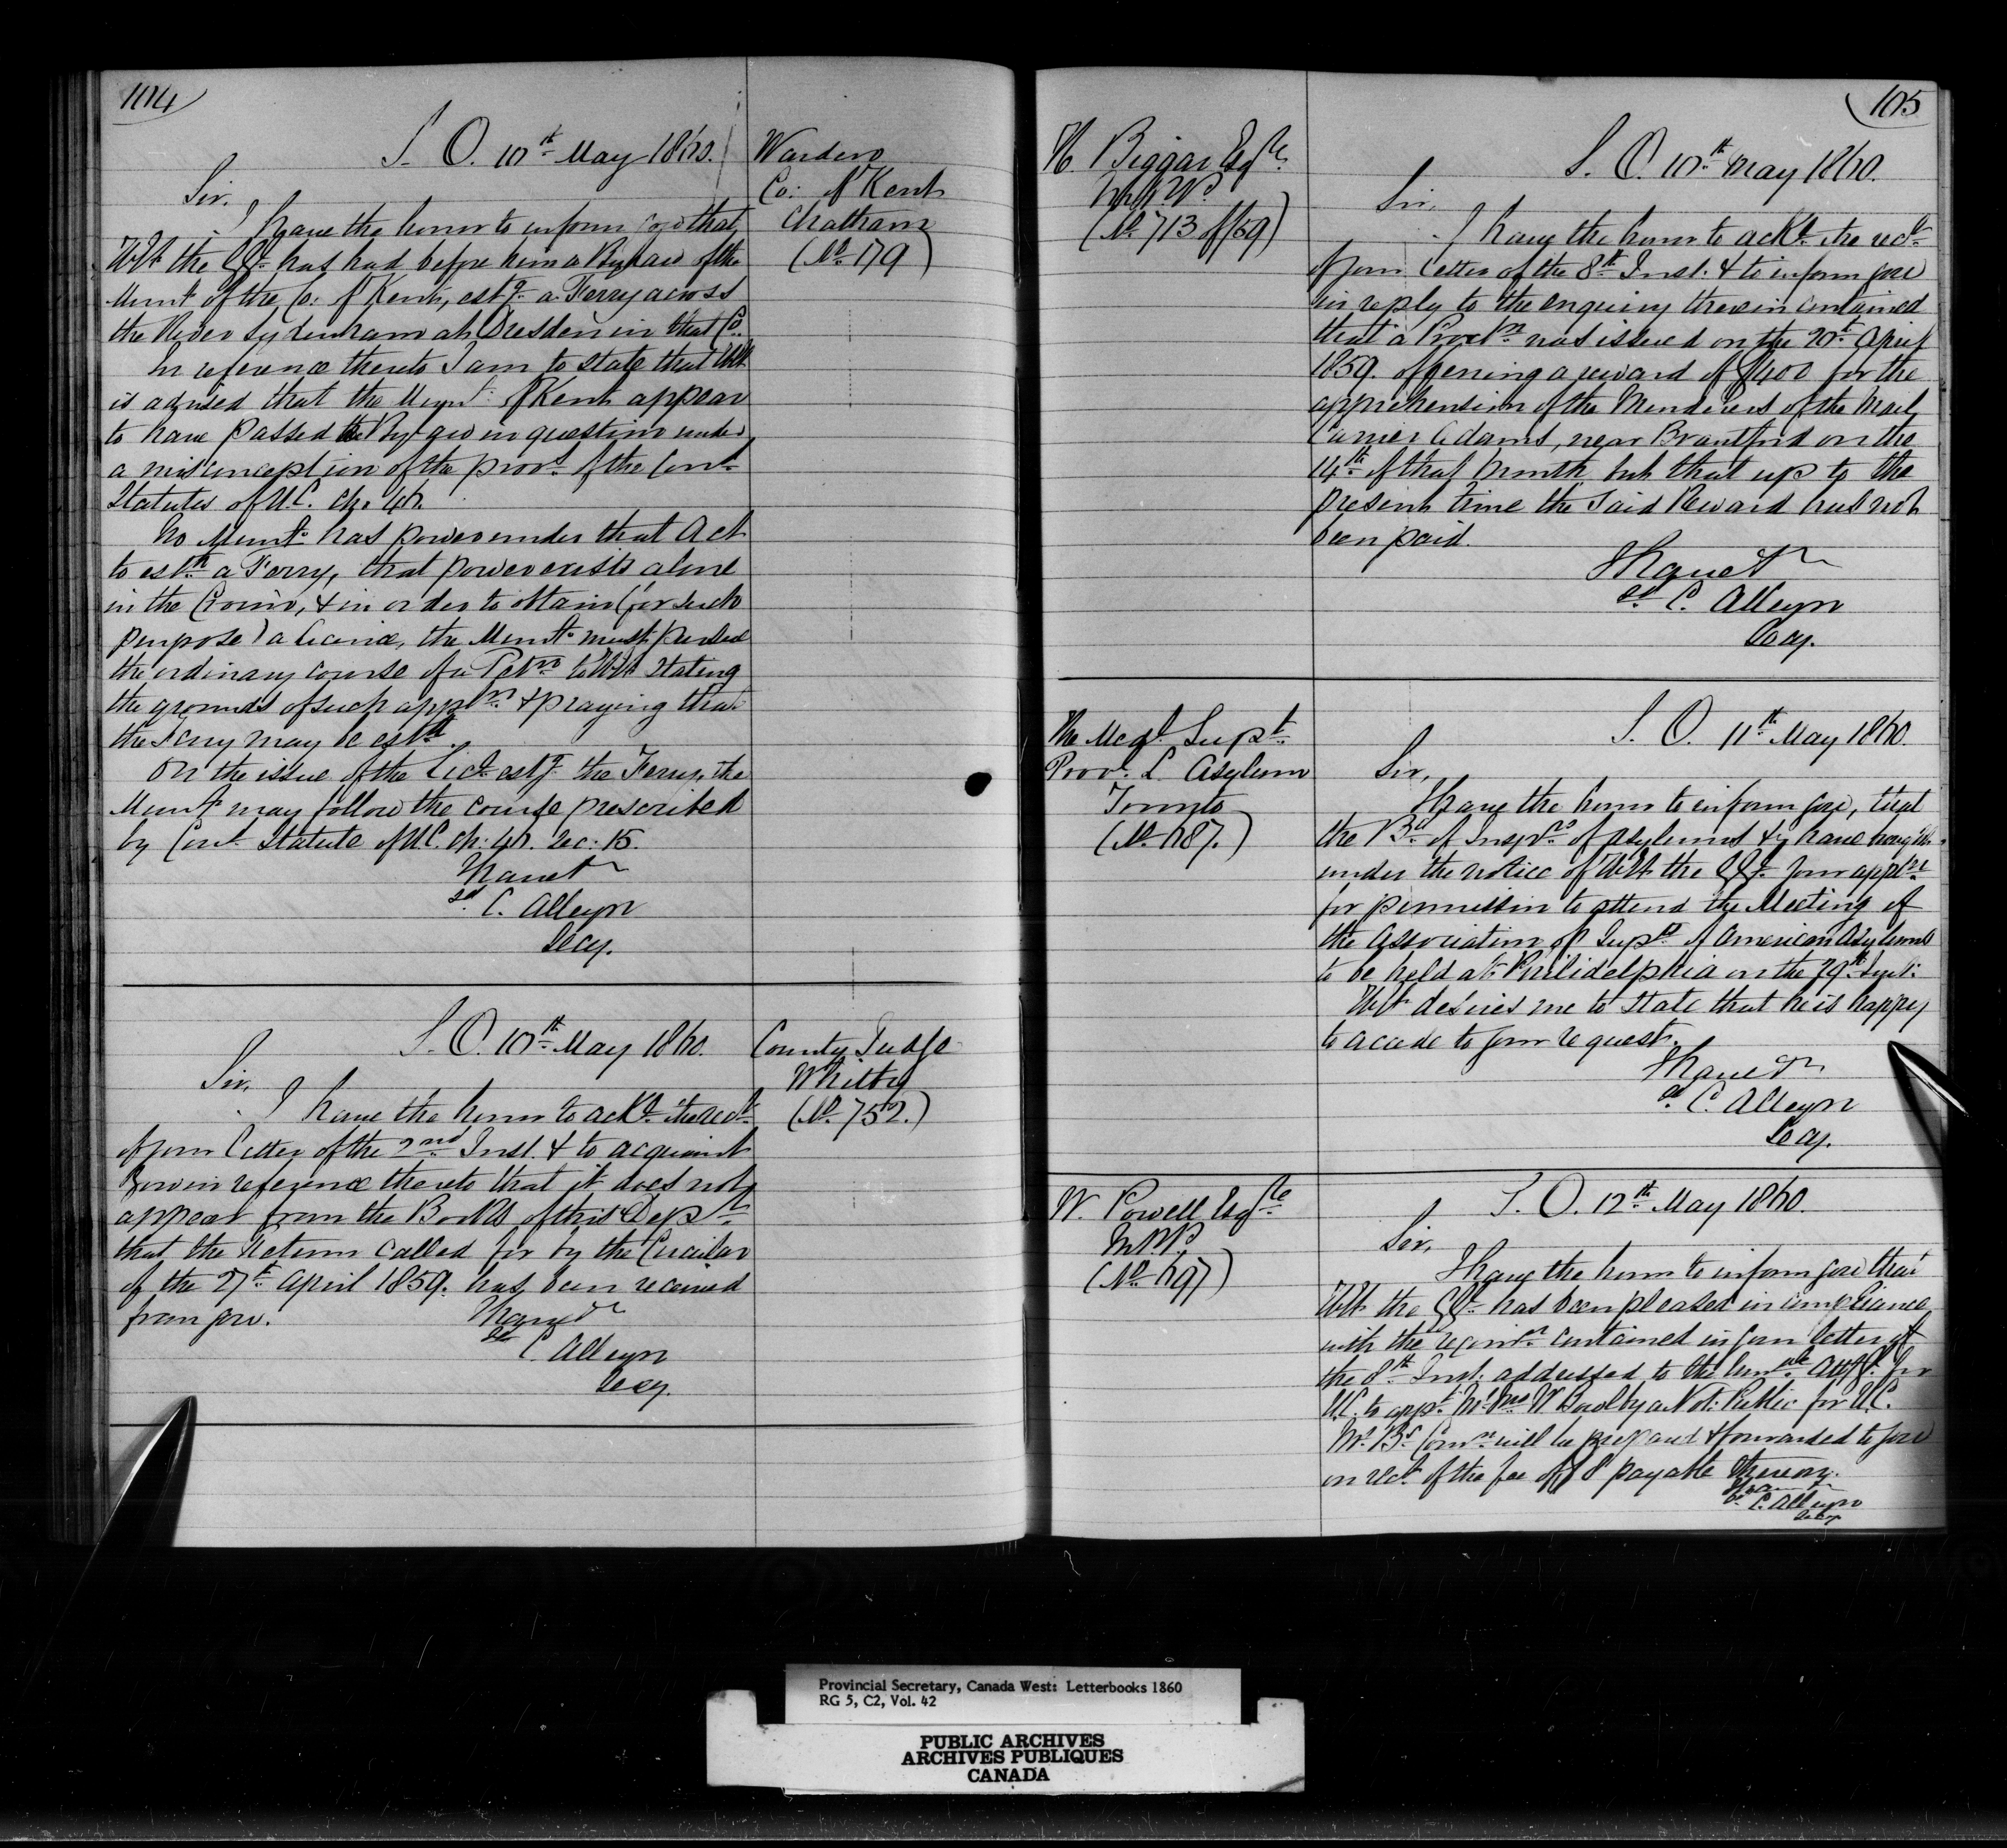 104
S. O. 10th May 1860.
Warden
Co: of Kent
Chatham
(No. 179)
Sir,
I have the honor to inform you that
H. E. the GG. has had before him a By law of the
Munt. of the Co: of Kent, estg. a Ferry across
the River Sydenham at Dresden in that Co.
In reference thereto I am to state that H. E.
is advised that the Munt. of Kent appear
to have passed the By-law in question under
a misconception of the provs. of the Cons.
Statutes of U.C. ch. 46.
No Munt. has power under that Act
to esth. a Ferry, that power exists alone
in the Crown, & in order to obtain (for such
purpose) a licence, the Munt. must pursue
the ordinary course of a Petn. to H. E. stating
the grounds of such appn. & praying that
the Ferry may be estd.
On the issue of the Lice. estg. the Ferry, the
Munt. may follow the course prescribed
by Cons. Statute of U.C. ch: 46. sec: 15.
I have &c
sd. C. Alleyn
Secy.
S. O. 10th May 1860.
County Judge
Whitby
(No. 752.)
Sir,
I have the honor to ackl. the rect.
of your letter of the 2nd Inst. & to acquaint
you in reference thereto that it does not
appear from the Books of this Dept.
that the Return called for by the Circular
of the 27th April 1859. has been received
from you.
I have &c
sd. C. Alleyn
Secy.
105
H. Biggar Esqre.
M.P.P.
(No. 713 of /59)
S. O. 10th May 1860.
Sir,
I have the honor to ackl. the rect.
of your letter of the 8th Inst. & to inform you
in reply to the enquiry therein contained
that a Procln. was issued on the 20th April
1859. offering a reward of $400 for the
apprehension of the Murderers of the Mail
Carrier Adams, near Brantford on the
14th of that month, but that up to the
present time the said Reward has not
been paid.
I have &c
sd. C. Alleyn
Secy.
The Medl. Supt.
Provl. L. Asylum
Toronto
(No. 687.)
S. O. 11th May 1860.
Sir,
I have the honor to inform you, that
the Bd. of Insprs. of Asylums &c have brought
under the notice of H. E. the GG. your appln.
for permission to attend the Meeting of
the Association of Supts. of American Asylums
to be held at Philidelphia on the 29th Inst:
H. E. desires me to state that he is happy
to accede to your request.
I have &c
sd. C. Alleyn
Secy.
W. Powell Esqre.
M.P.P.
(No. 697)
S. O. 12th May 1860.
Sir,
I have the honor to inform you that
H. E. the GG. has been pleased in compliance
with the recomn. contained in your letter of
the 8th Inst. addressed to the Honble. Atty. Gl. for
U.C. to appt. Mr. Jno W. Bowlby a Not: Public for U.C.
Mr. B's Comn. will be prepared & forwarded to you
on rect. of the fee of $8 payable thereon.
I have &c
sd. C. Alleyn
Secy
Provincial Secretary, Canada West: Letterbooks 1860
RG 5, C2, Vol. 42
PUBLIC ARCHIVES
ARCHIVES PUBLIQUES
CANADA